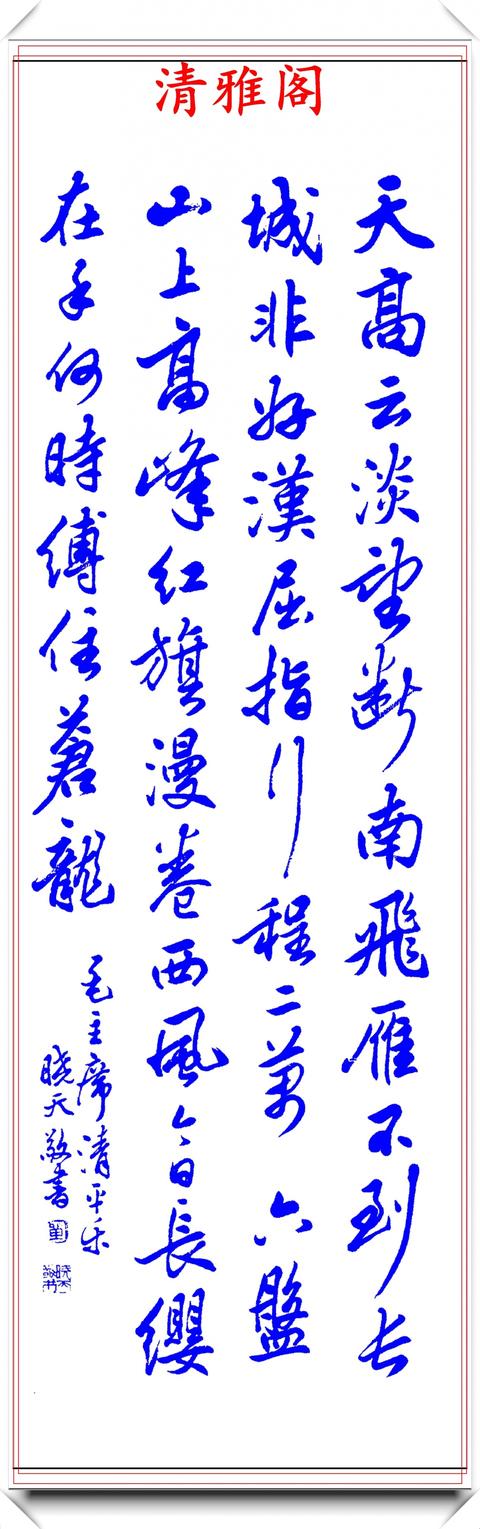 清雅阁
天高云淡望断南飛雁不到长
城非好漢屈指行程二萬六盤
山上髙峰红旗漫卷西風今日長纓
在手何時縛住蒼龍
毛主席清平乐
晓天敬書